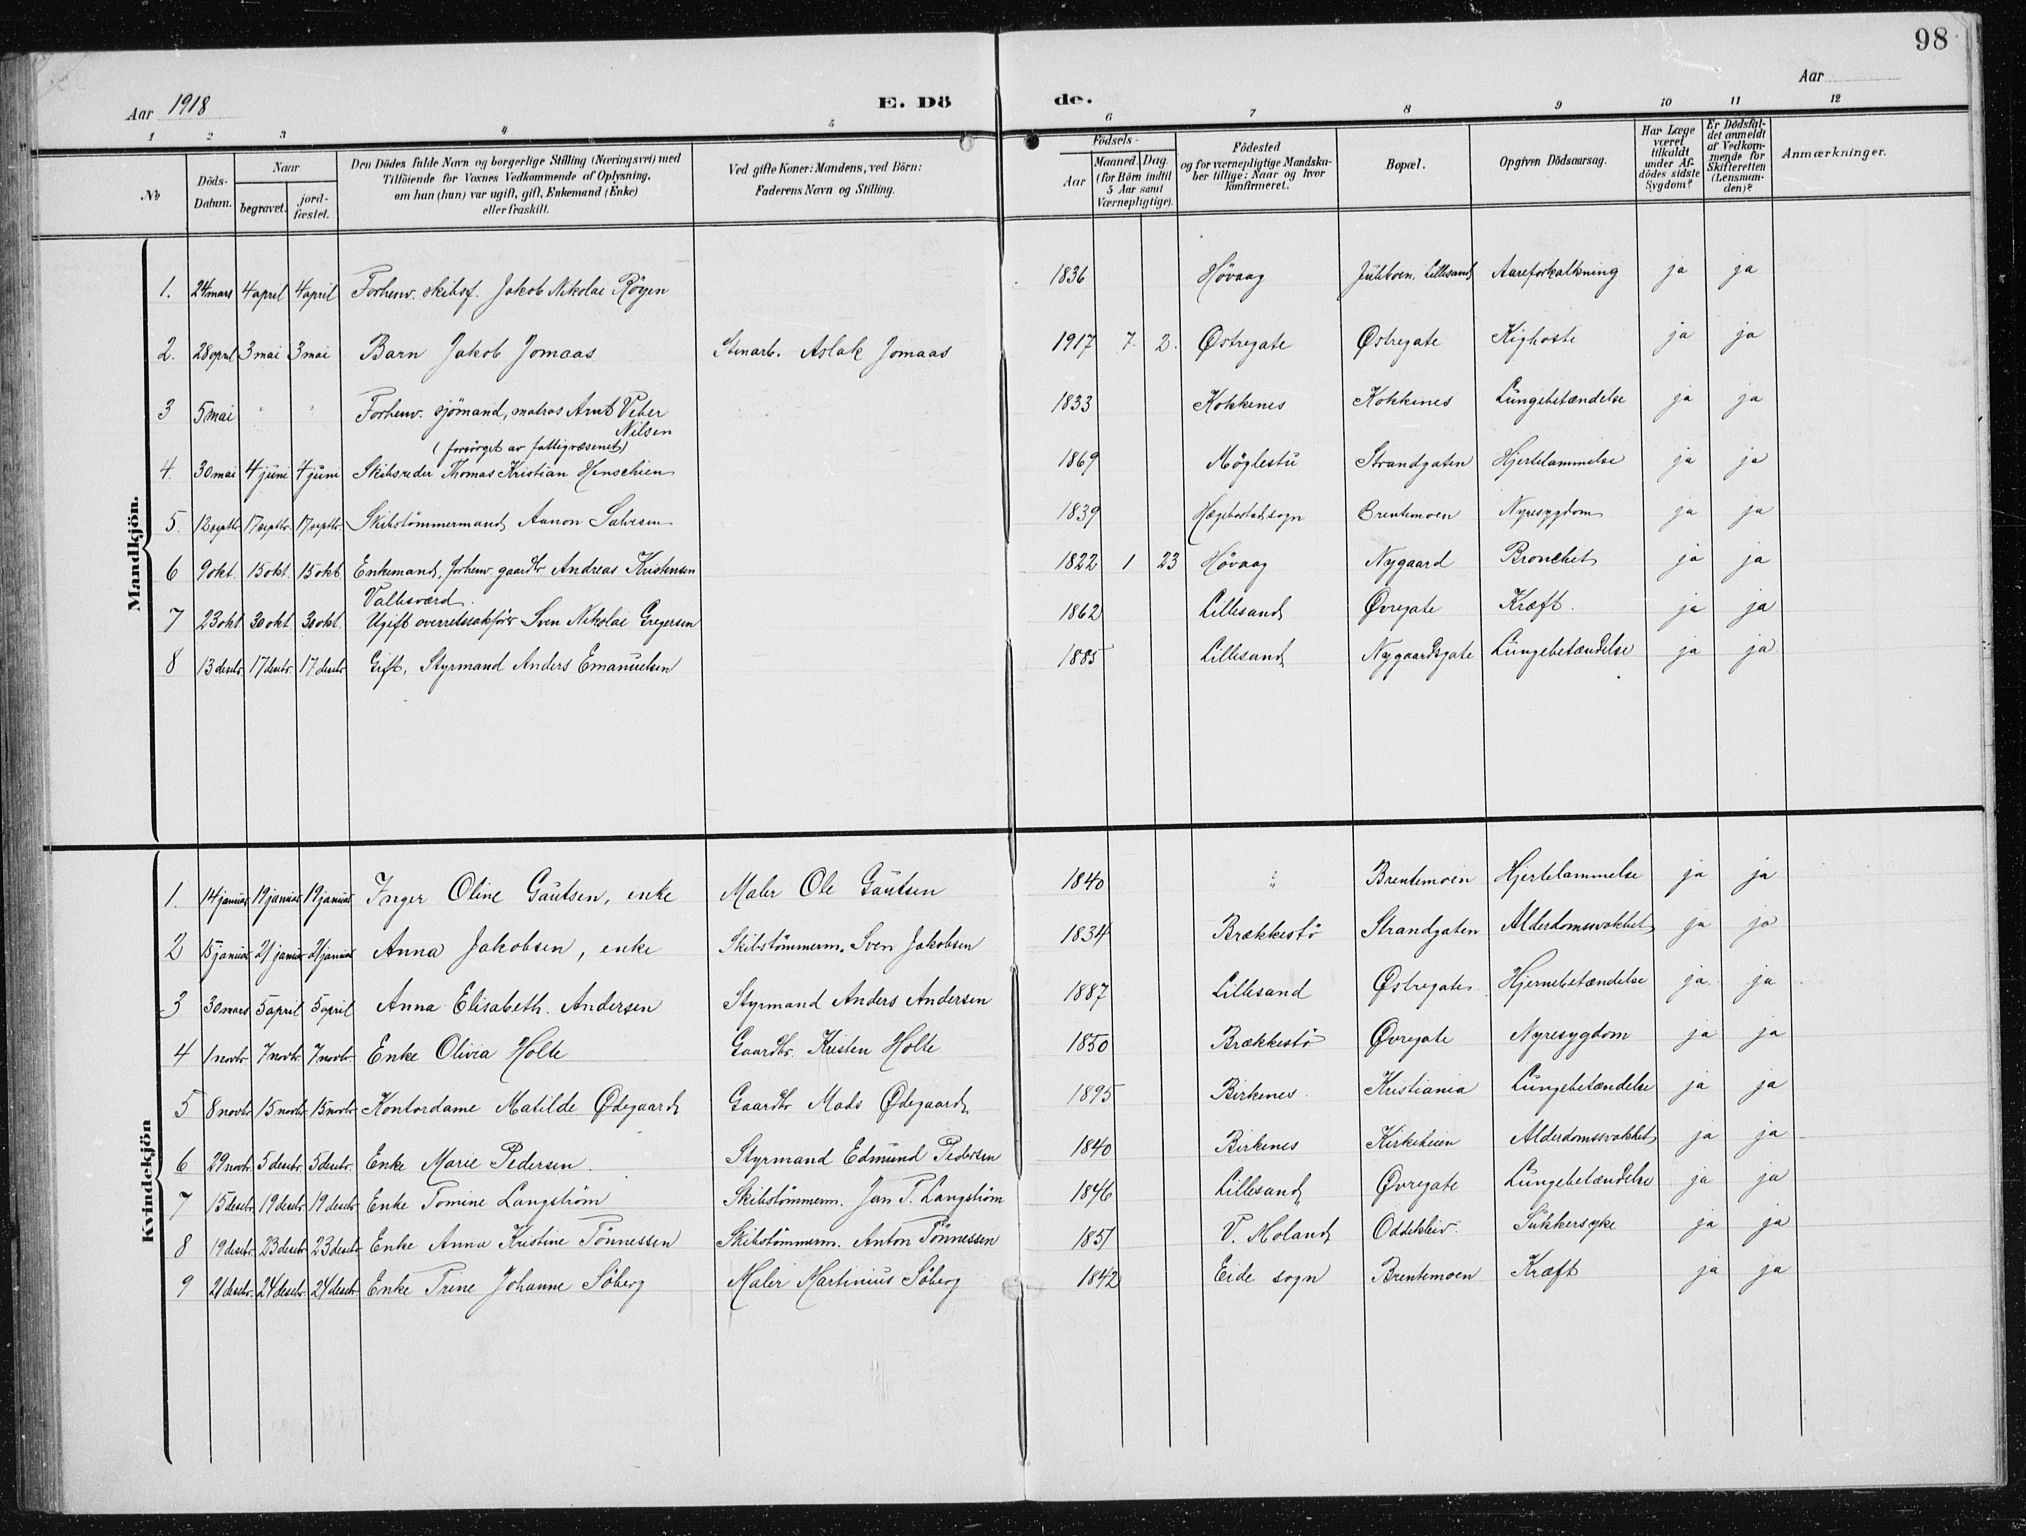 98
Aar 1918 E. Dö de. Aar
1 2 3 4 5 6 7 8 9 10 11 12
№ Döds-Datum. Naar begravet. jord-fæstet. Den Dödes fulde Navn og borgerlige Stilling (Næringsvei) med Tilföiende for Voxnes Vedkommende af Oplysning, om han (hun) var ugift, gift, Enkemand (Enke) eller fraskilt. Ved gifte Koner: Mandens, ved Börn: Faderens Navn og Stilling. Födsels- Aar Maaned. Dag. (for Börn indtil 5 Aar samt Værnepligtige). Födested og for værnepligtige Mandskaber tillige: Naar og hvor konfirmeret. Bopæl. Opgiven Dödsaarsag. Har Læge været tilkaldt under Afdödes sidste Sygdom? Er Dödsfaldet anmeldt af Vedkommende for Skifteretten (Lensmanden)? Anmærkninger.
Mandkjön.
1. 24 mars 4 april 4 april Forhenv. skibsf. Jakob Nikolai Röyen 1836 Hövaag Lillesand Aareforkalkning ja ja
2. 28 april 3 mai 3 mai Barn Jakob Jomaas Stenarb. Aslak Jomaas 1917 7 2. Østregate Østregate Kighoste ja ja
3 5 mai " " Forhenv. sjömand, matros Arnt Veber 1833 Kokkenes Kokkenes Lungebetændelse ja ja
Nilsen
(forsörget av fattigvæsenet)
4. 30 mai 4 juni 4 juni Skibsreder Thomas Kristian Henschien 1869 Möglestu Strandgaten Hjertelammelse ja ja
5. 12 septbr. 17 septbr. 17 septbr. Skibstömmermand Aanon Salvesen 1839 Hægebostad sogn Brentemoen Nyresygdom ja ja
6 9 okt. 15 okt. 15 okt. Enkemand, forhenv. gaardbr. Andreas Kristensen 1822 1 23 Hövaag Nygaard Bronchet ja ja
Vallesværd.
7 23 okt 30 okt 30 okt. Ugift overretssakförer Sven Nikolai Gregersen 1862 Lillesand Øvregate Kræft. ja ja
8 13 desbr. 17 desbr. 17 desbr. Gift, Styrmand Anders Emanuelsen 1885 Lillesand Nygaardsgate Lungebetændelse ja ja.
Kvindekjön
1. 14 januar 19 januar 19 januar Inger Oline Gautsen, enke Maler Ole Gautsen 1840 " Brentemoen Hjertelammelse ja ja
2 15 januar 21 januar 21 januar Anna Jakobsen, enke Skibstömmerm. Sven Jakobsen 1834 Brækkestö Strandgaten Alderdomssvakhet ja ja
3 30 mars 5 april 5 april Anna Elisabeth. Andersen Styrmand Anders Andersen 1887 Lillesand Østregate Hjernebetændelse ja ja
4 1 novbr. 7 novbr. 7 novbr. Enke Olivia Holte Gaardbr. Kristen Holte 1850 Brækkestö Øvregate Nyresygdom ja ja
5 8 novbr. 15 novbr. 15 novbr. Kontordame Matilde Ødegaard Gaardbr Mads Ødegaard 1895 Birkenes. Kristiania Lungebetændelse ja ja
6 29 novbr. 5 desbr. 5 desbr. Enke Marie Pedersen. Styrmand Edmund Pedersen 1840 Birkenes Kirkeheien Alderdomssvakhet ja ja
7 15 desbr. 19 desbr. 19 desbr. Enke Tomine Langström Skibstömmerm. Jan T. Langström 1846 Lillesand Øvregate Lungebetændelse ja ja
8 19 desbr. 23 desbr. 23 desbr. Enke Anna Kristine Tönnessen Skibstömmerm. Anton Tönnessen 1851 V. Moland Oddekleiv. Sukkersyke ja ja
9 21 desbr. 24 desbr. 24 desbr. Enke Trine Johanne Söberg Maler Martinius Söberg 1842 Eide sogn Brentemoen Kræft ja ja